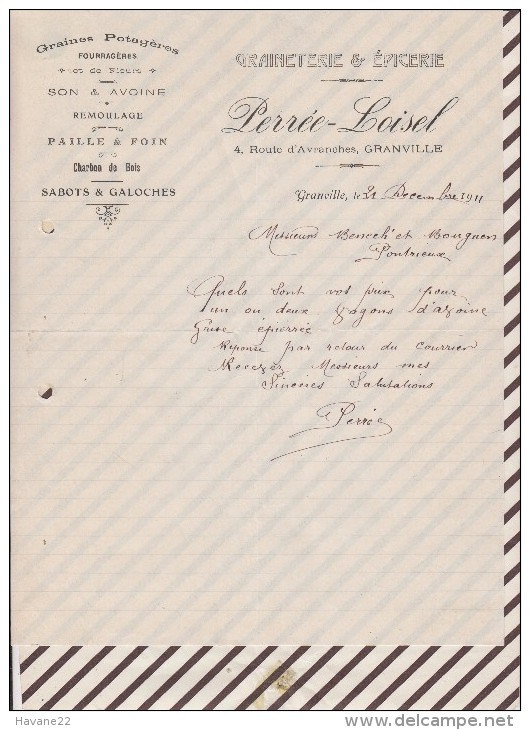 Graines Potagères
FOURRAGÈRES
et de Fleurs
SON & AVOINE
REMOULAGE
PAILLE & FOIN
Charbon de Bois
SABOTS & GALOCHES
GRAINETERIE & ÉPICERIE
Perrée-Loisel
4, Route d'Avranches, GRANVILLE
Granville, le 21 Decembre 1911
Messieurs Benech et Bouguen
Pontrieux
Quels sont vos prix pour
un ou deux vagons d'avoine
Grise épierrée
Réponse par retour du courrier
Recevez Messieurs mes
Sincères Salutations
Perrée
Havane22
www.delcampe.net